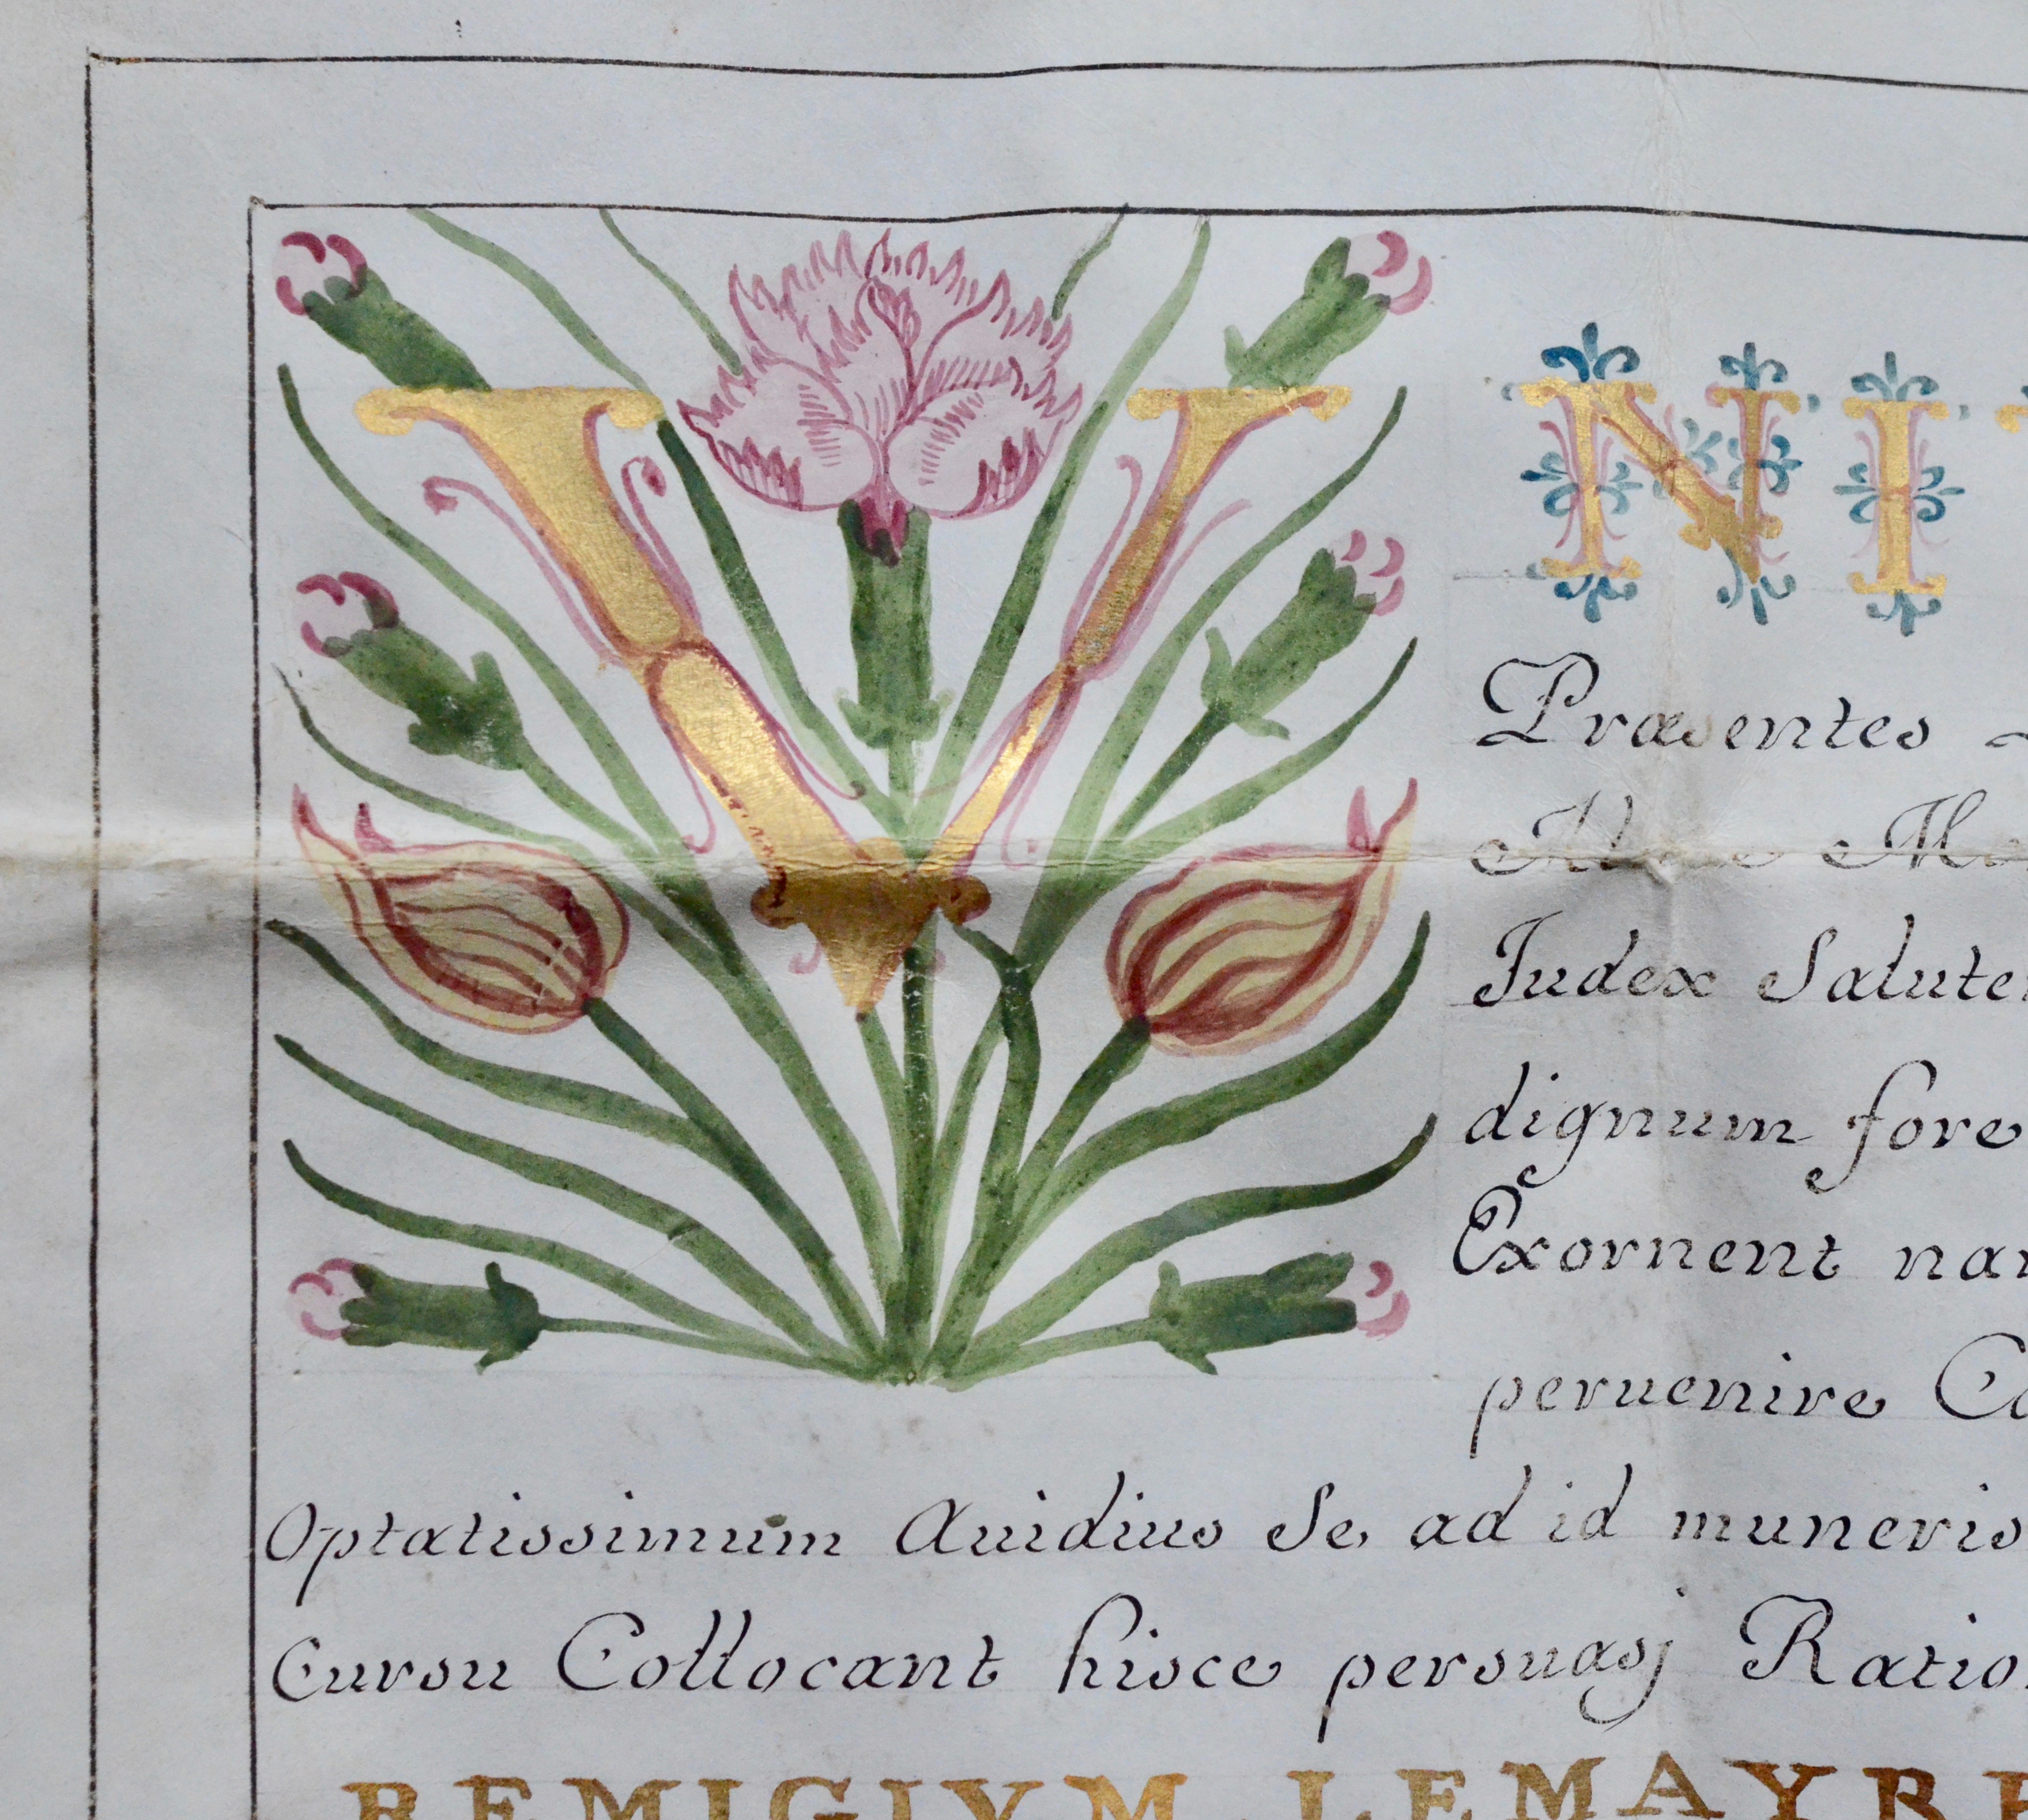 VNI
Præsentes
Index Salute
dignum fore
Exornent nar
peruenire Co
Optatissimum Auidius Se ad id muneris
Cursu Collocant hisce persuasj Ratio
REMIGIVM LEMAYRE